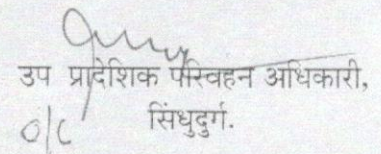 उप प्रादेशिक परिवहन अधिकारी,
o/c सिंधुदुर्ग.